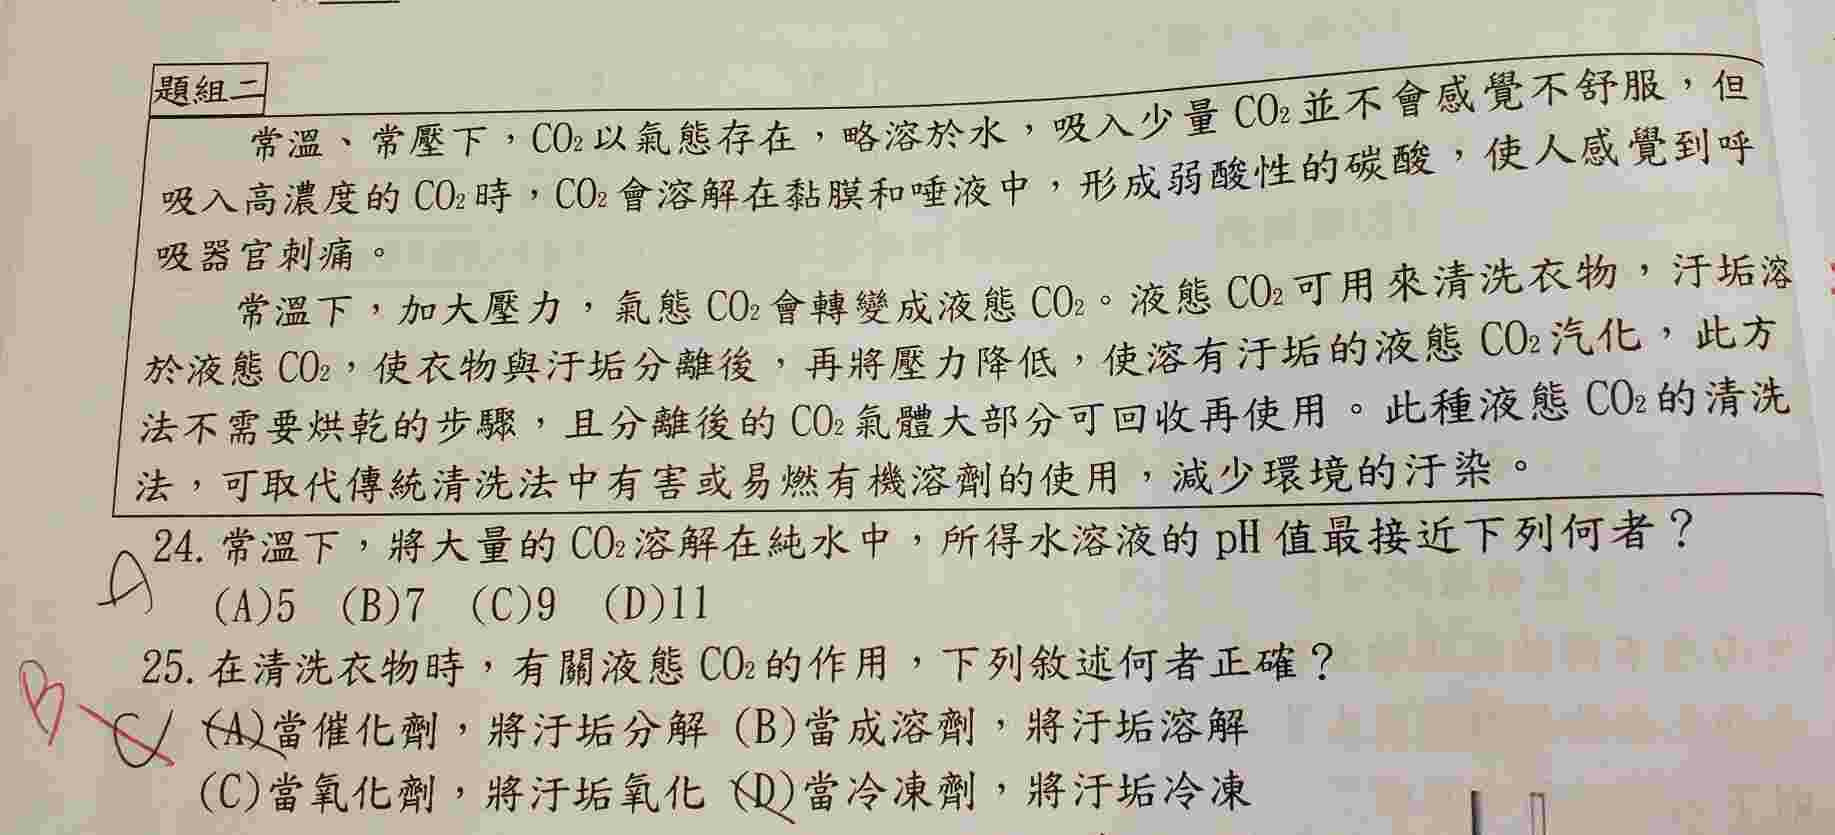 題組二
常溫、常壓下，CO₂以氣態存在，略溶於水，吸入少量CO₂並不會感覺不舒服，但
吸入高濃度的CO₂時，CO₂會溶解在黏膜和唾液中，形成弱酸性的碳酸，使人感覺到呼
吸器官刺痛。
常溫下，加大壓力，氣態CO₂會轉變成液態CO₂。液態CO₂可用來清洗衣物，汙垢溶
於液態CO₂，使衣物與汙垢分離後，再將壓力降低，使溶有汙垢的液態CO₂汽化，此方
法不需要烘乾的步驟，且分離後的CO₂氣體大部分可回收再使用。此種液態CO₂的清洗
法，可取代傳統清洗法中有害或易燃有機溶劑的使用，減少環境的汙染。
A 24. 常溫下，將大量的CO₂溶解在純水中，所得水溶液的pH值最接近下列何者？
(A)5 (B)7 (C)9 (D)11
25. 在清洗衣物時，有關液態CO₂的作用，下列敘述何者正確？
B C (A)當催化劑，將汙垢分解 (B)當成溶劑，將汙垢溶解
(C)當氧化劑，將汙垢氧化 (D)當冷凍劑，將汙垢冷凍